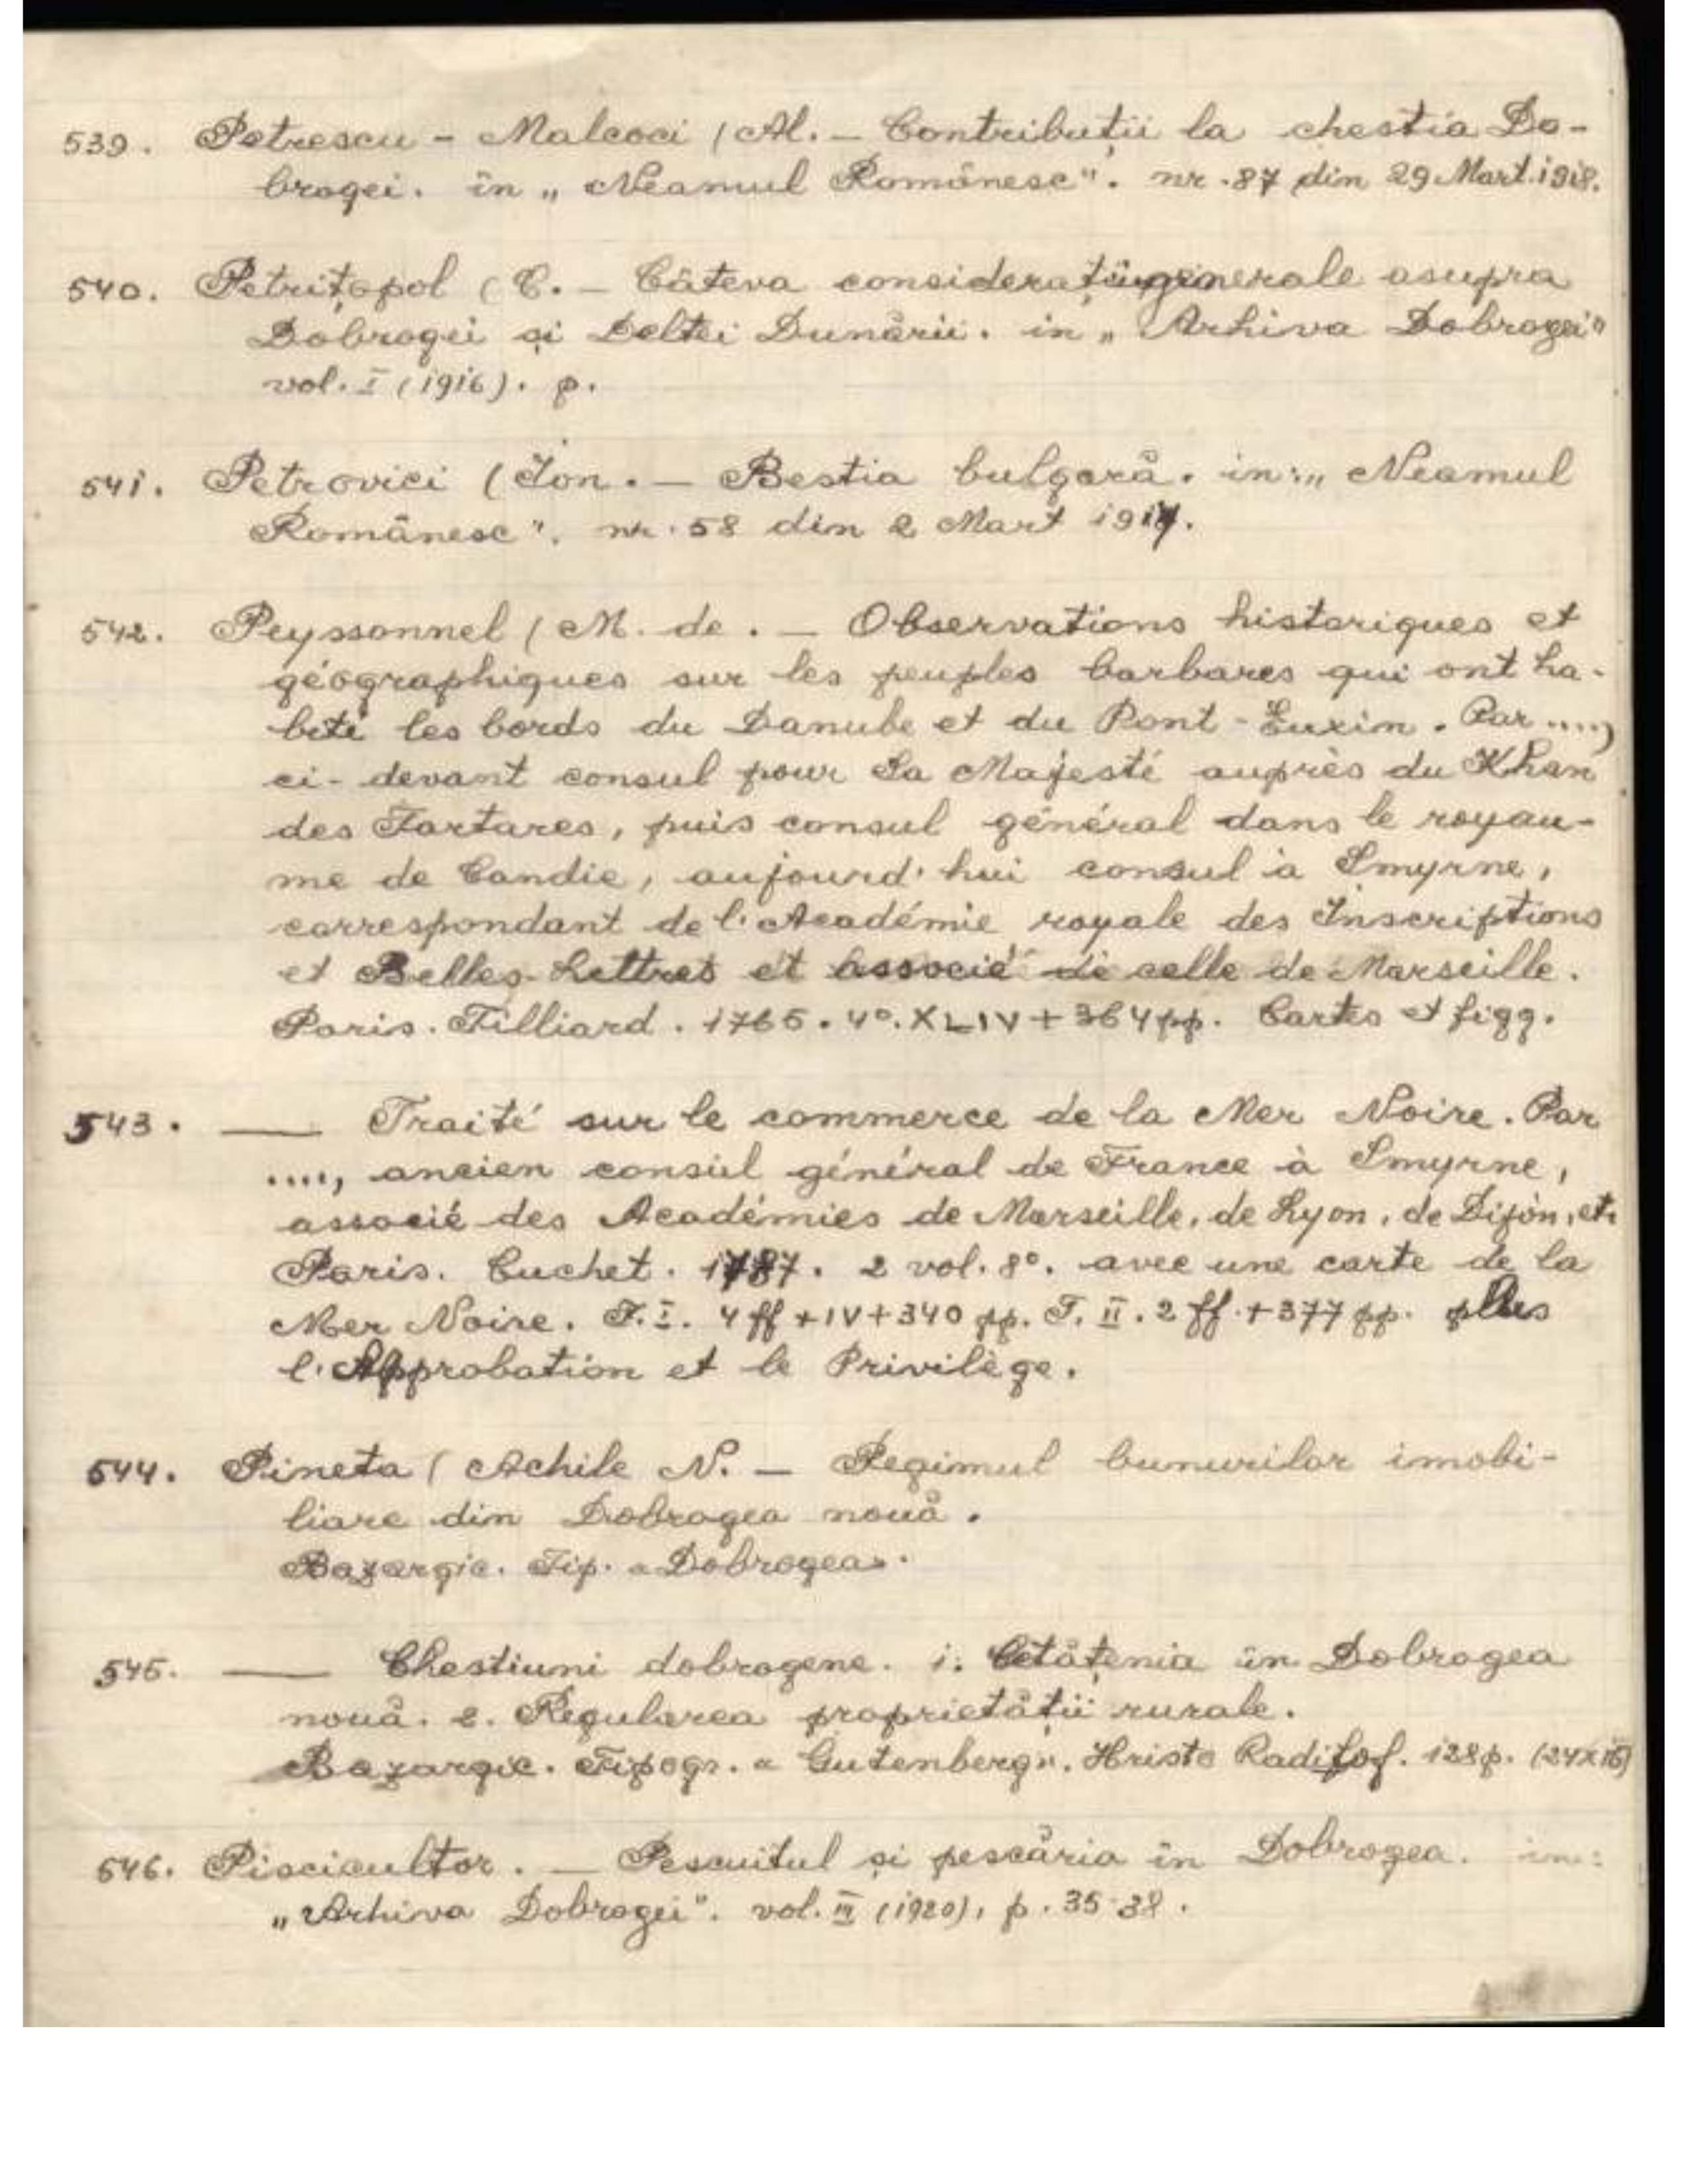 539. Petrescu - Malcoci (Al. — Contribuții la chestia Do-
brogei. în „Neamul Românesc". nr. 87 din 29 Mart. 1918.
540. Petrițopol (C. — Câteva considerații generale asupra
Dobrogei și Deltei Dunării. in „Arhiva Dobrogei"
vol. I (1916). p.
541. Petrovici (Ion. — Bestia bulgară. in: „Neamul
Românesc". nr. 58 din 2 Mart 1917.
542. Peyssonnel (M. de. — Observations historiques et
géographiques sur les peuples barbares qui ont ha-
bité les bords du Danube et du Pont-Euxin. Par ....,
ci-devant consul pour Sa Majesté auprès du Khan
des Tartares, puis consul général dans le royau-
me de Candie, aujourd'hui consul à Smyrne,
correspondant de l'Académie royale des Inscriptions
et Belles-Lettres et associé de celle de Marseille.
Paris. Tilliard. 1765. 4°. XLIV + 364 pp. Cartes et figg.
543. —— Traité sur le commerce de la Mer Noire. Par
...., ancien consul général de France à Smyrne,
associé des Académies de Marseille, de Lyon, de Dijon, etc
Paris. Cuchet. 1787. 2 vol. 8°. avec une carte de la
Mer Noire. T. I. 4 ff + IV + 340 pp. T. II. 2 ff. + 377 pp. plus
l'Approbation et le Privilège.
544. Pineta (Achile N. — Regimul bunurilor imobi-
liare din Dobrogea nouă.
Bazargic. Tip. «Dobrogea».
545. —— Chestiuni dobrogene. 1. Cetățenia în Dobrogea
nouă. 2. Regularea proprietății rurale.
Bazargic. Tipogr. «Gutenberg». Hristo Radilof. 128 p. (24x16)
546. Piscicultor. — Pescuitul și pescăria în Dobrogea. in:
„Arhiva Dobrogei". vol. III (1920), p. 35-38.